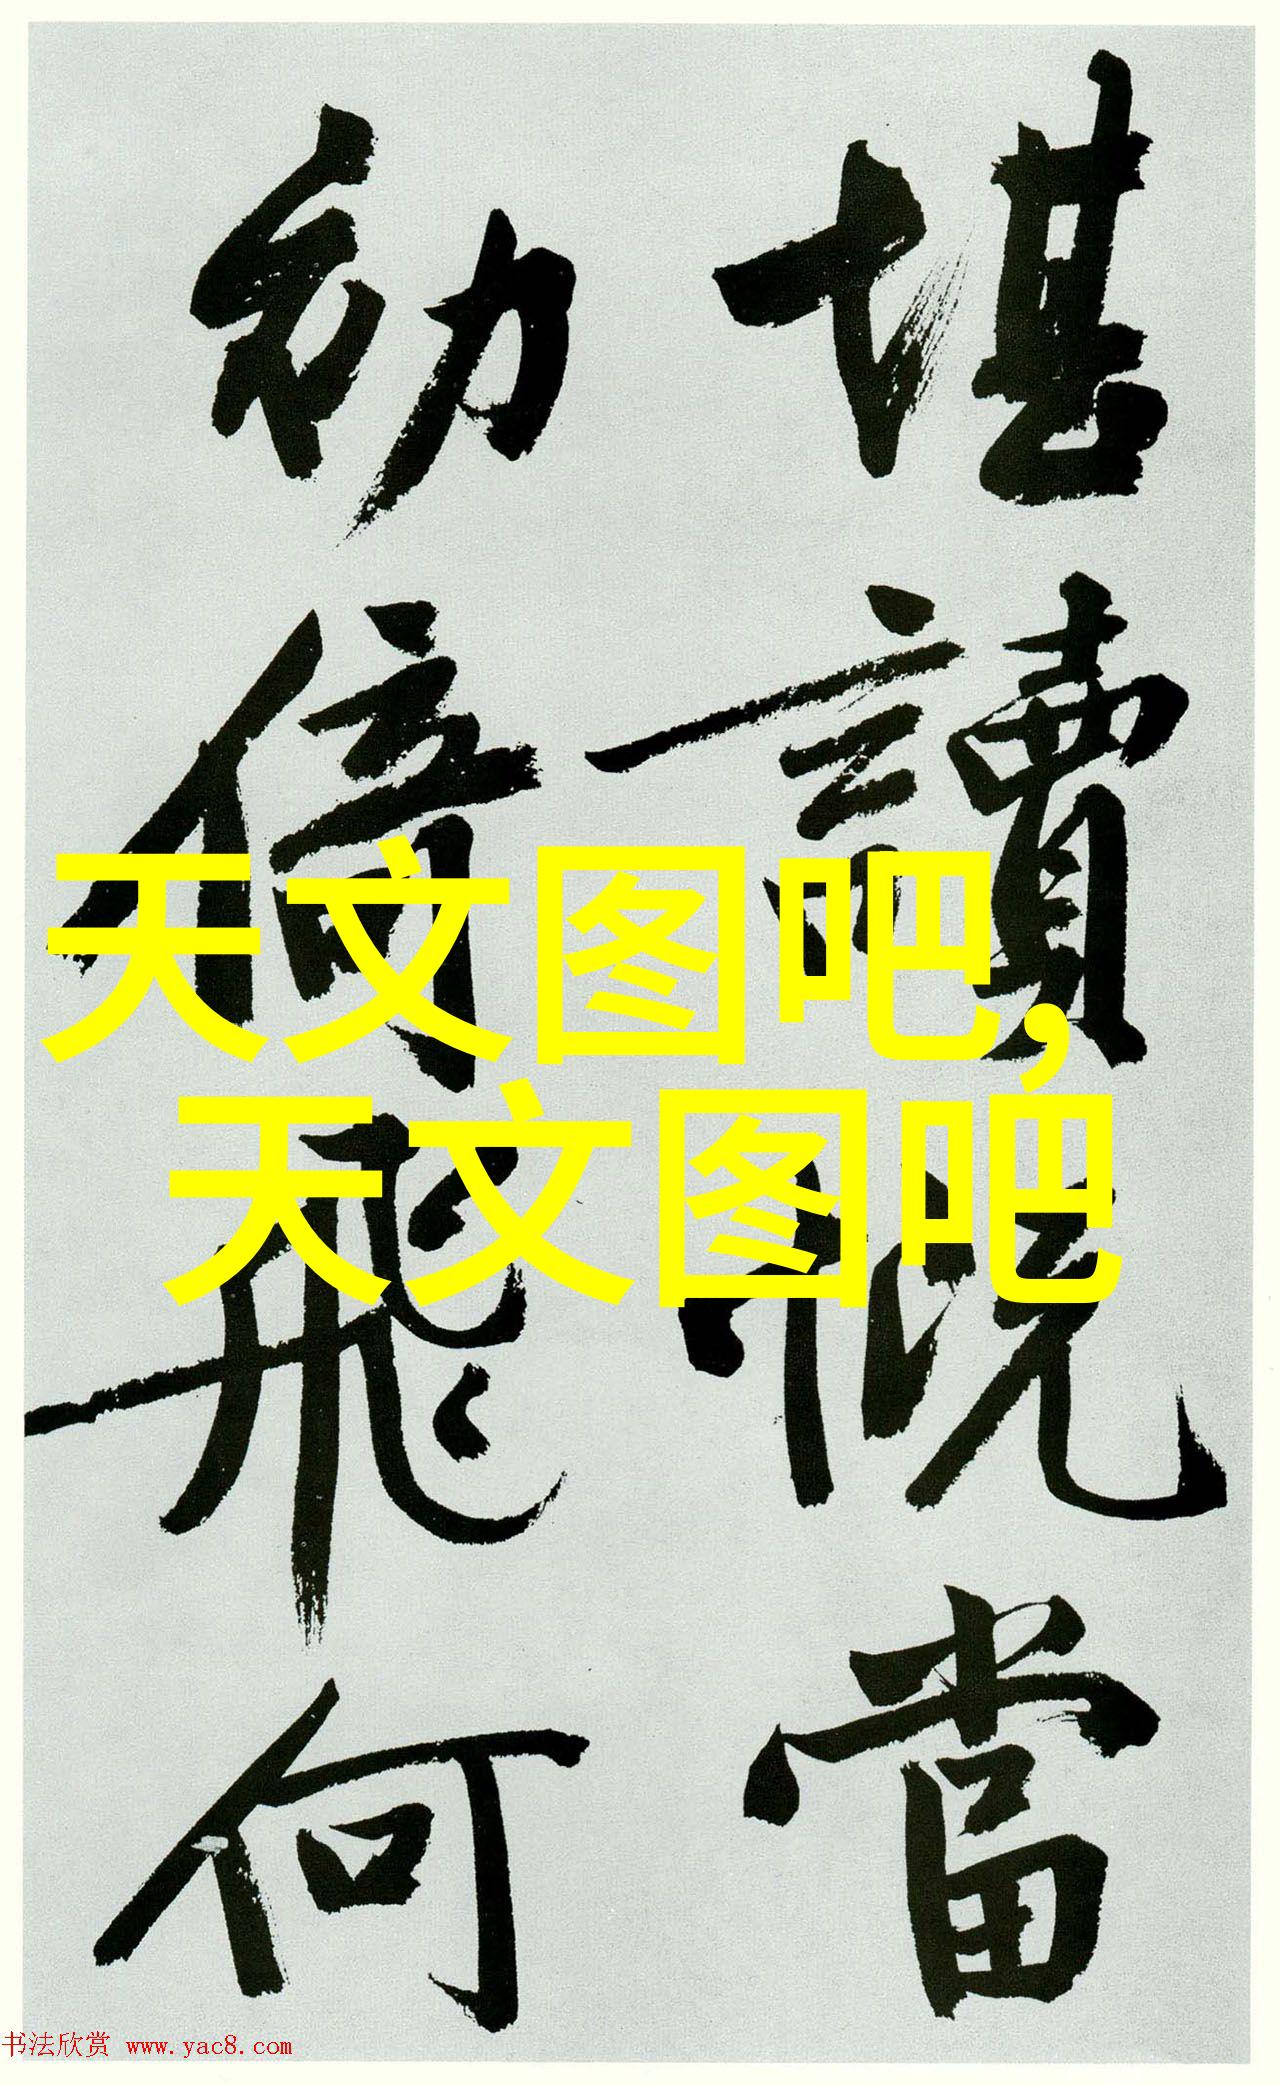 堪讀慨當
幼倍飛何
天文图吧,
天文图吧
书法欣赏 www.yac8.com